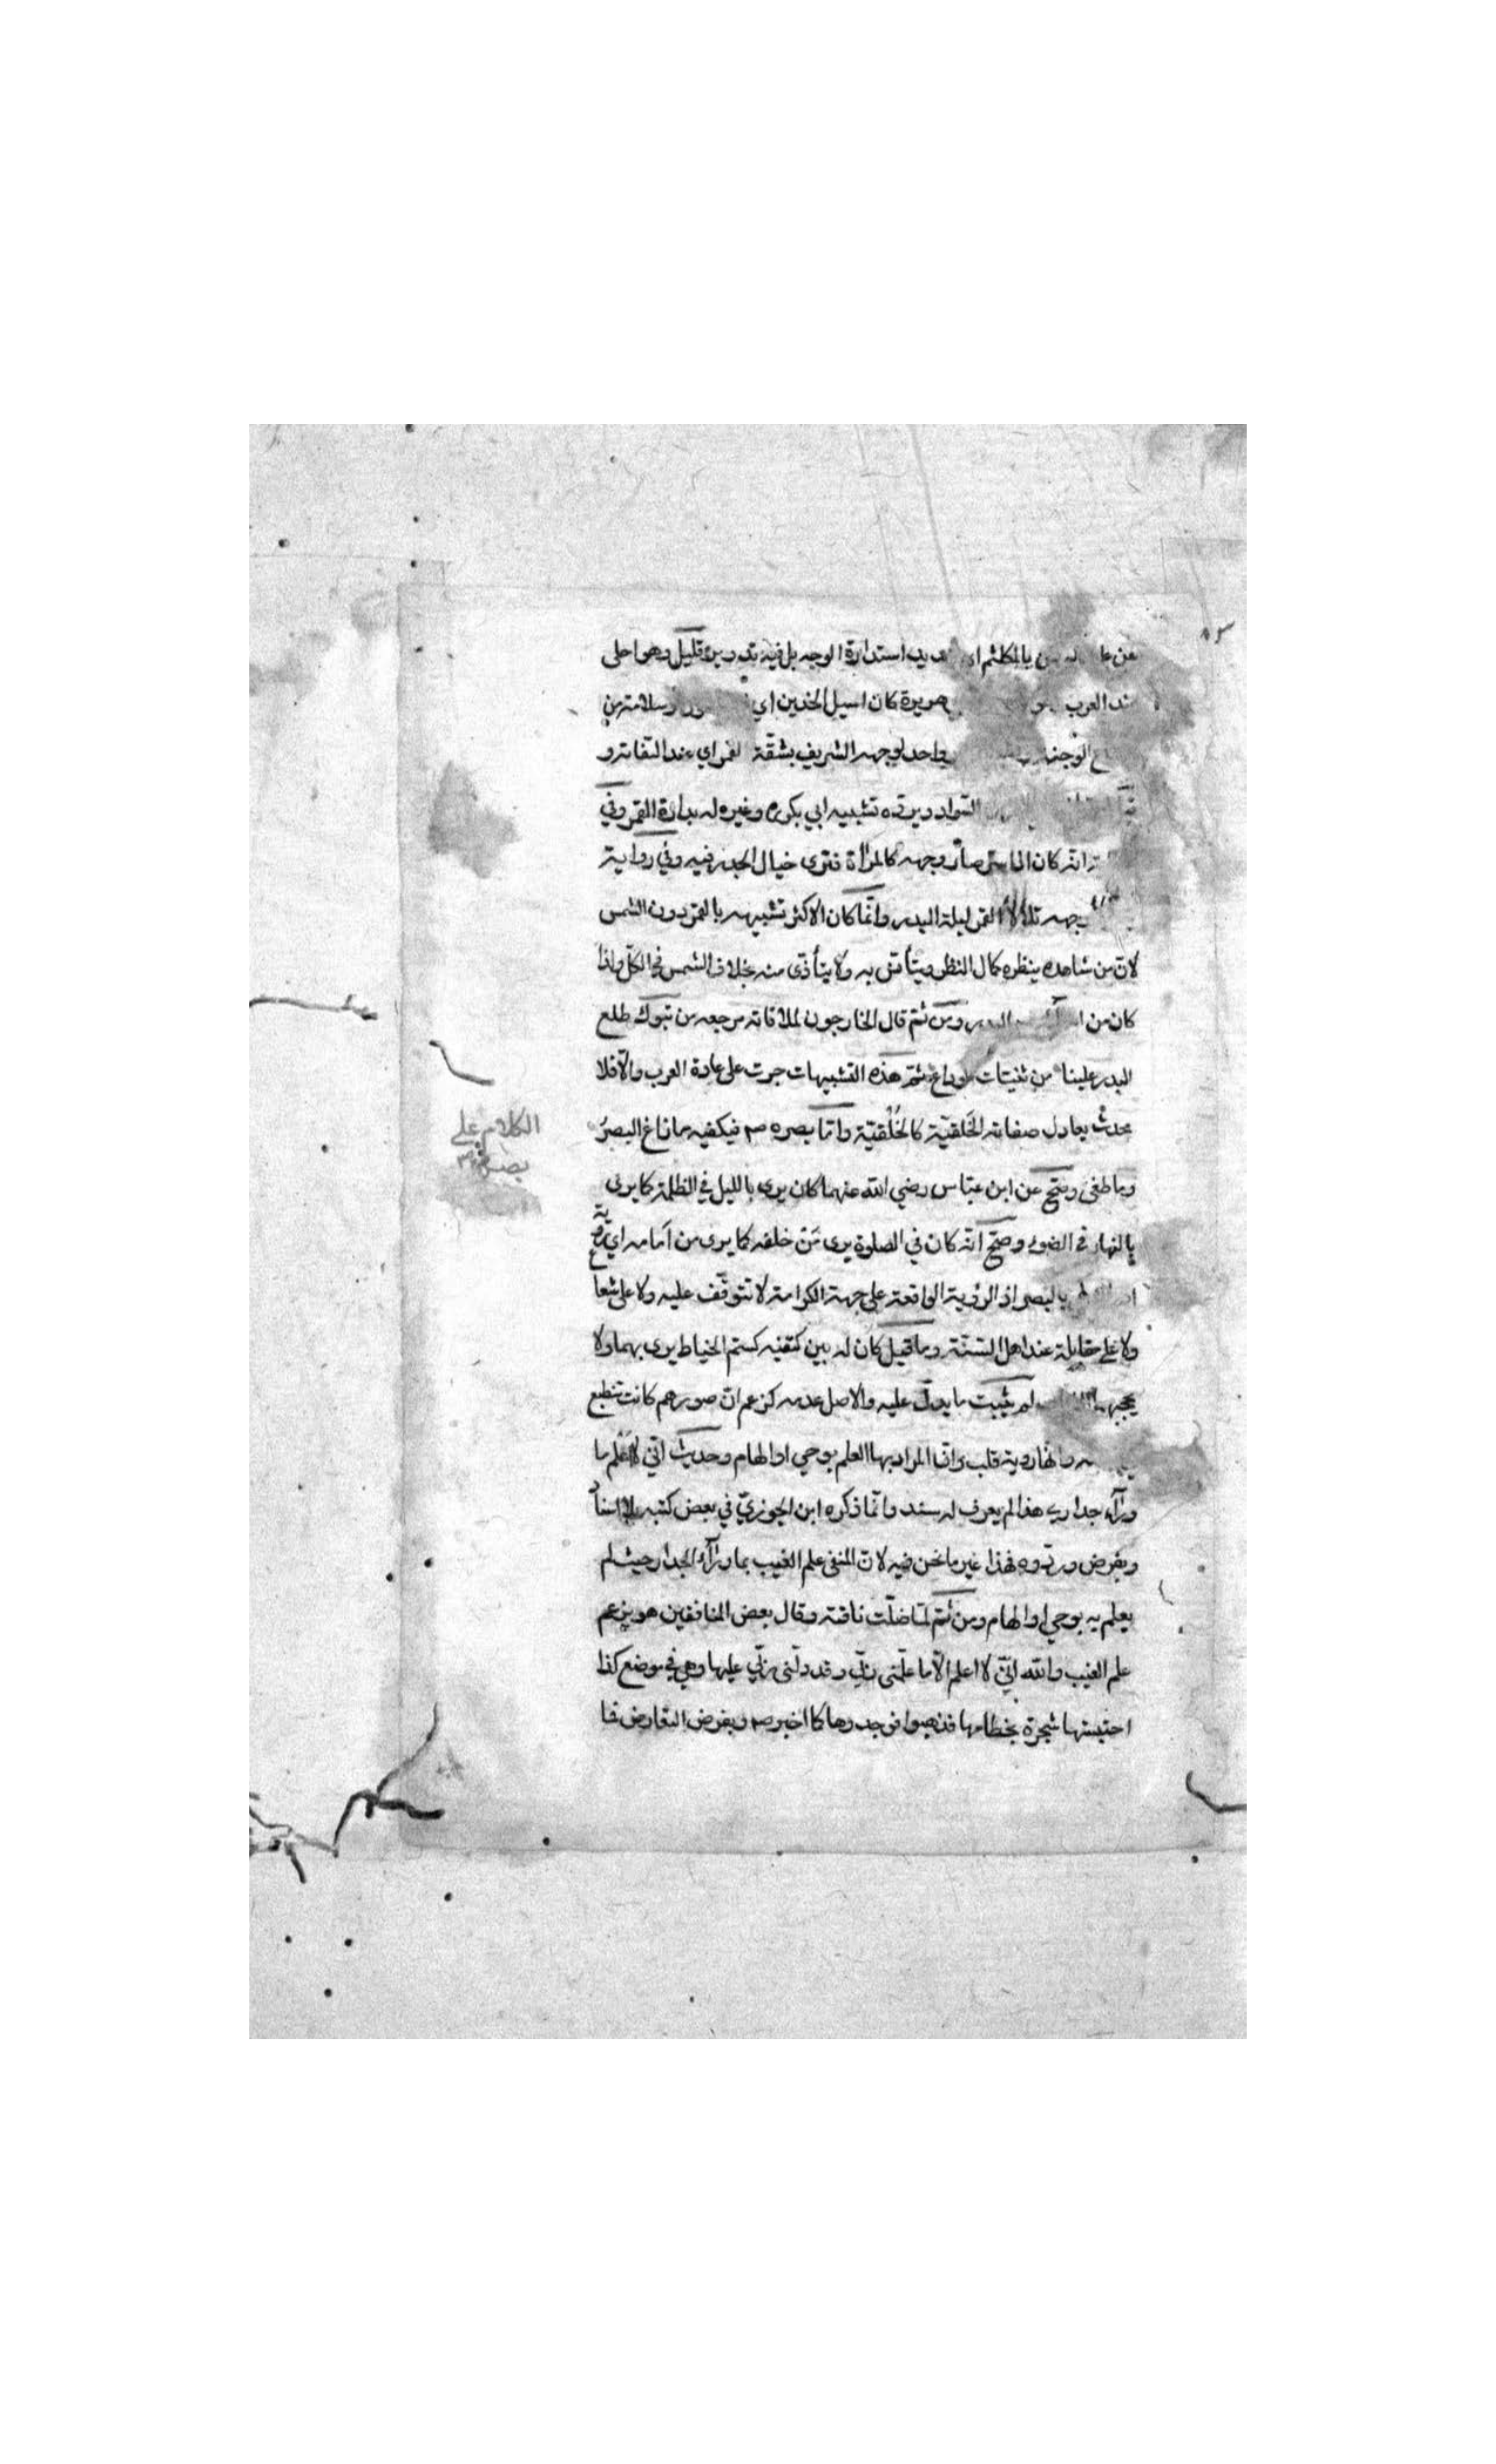 عن بالمكلثم استدارة الوجه بل فيه تدوير قليل وهو احلى
العرب هريرة كان اسيل الخدين اي وسلامته من
واحد لوجهه الشريف بشقة القمر اي عند التفاته و
السواد ويرده تشبيه ابي بكر وغيره له بدارة القمر وفي
انه كان اذا سر صار وجهه كالمرآة فترى خيال الجدر فيه وفي رواية
وجهه تلألأ القمر ليلة البدر وانما كان الاكثر تشبيهه بالقمر دون الشمس
لان من شاهده ينظره كمال النظر ويتأنس به ولا يتأذى منه بخلاف الشمس في الكل واذا
كان من البدر ومن ثم قال الخارجون لملاقاته مرجعه من تبوك طلع
البدر علينا من ثنيات الوداع ثم هذه التشبيهات جرت على عادة العرب والا فلا
محدث يعادل صفاته الخَلقيّة كالخُلُقيّة واما بصره صم فيكفيه ما زاغ البصرُ
وما طغى وصح عن ابن عباس رضي الله عنهما كان يرى بالليل في الظلمة كما يرى
بالنهار في الضوء وصح انه كان في الصلوة يرى مَن خلفه كما يرى من اَمامه اي رؤية
بالبصر اذ الرؤية الواقعة على جهة الكرامة لا تتوقف عليه ولا على شعاع
ولا على مقابلة عند اهل السنة وما قيل كان له بين كتفيه كسم الخياط يرى بهما ولا
يحجبهما لم يثبت ما يدل عليه والاصل عدمه كزعم ان صورهم كانت تنطبع
وانها روية قلب وانما المراد بها العلم بوحي او الهام وحديث اني لا اعلم ما
ورآء جداري هذا لم يعرف له سند وانما ذكره ابن الجوزيّ في بعض كتبه بلا اسناد
وبفرض وروده فهذا غير ما نحن فيه لان المنفى علم الغيب بما ورآء الجدار حيث لم
يعلم به بوحي او الهام ومن ثم لما ضلت ناقته وقال بعض المنافقين هو يزعم
علم الغيب والله اني لا اعلم الا ما علمنى ربي وقد دلنى ربي عليها وهي في موضع كذا
احتبستها شجرة بخطامها فذهبوا فوجدوها كما اخبر صم وبفرض التعارض فا
الكلام على
بصره صم